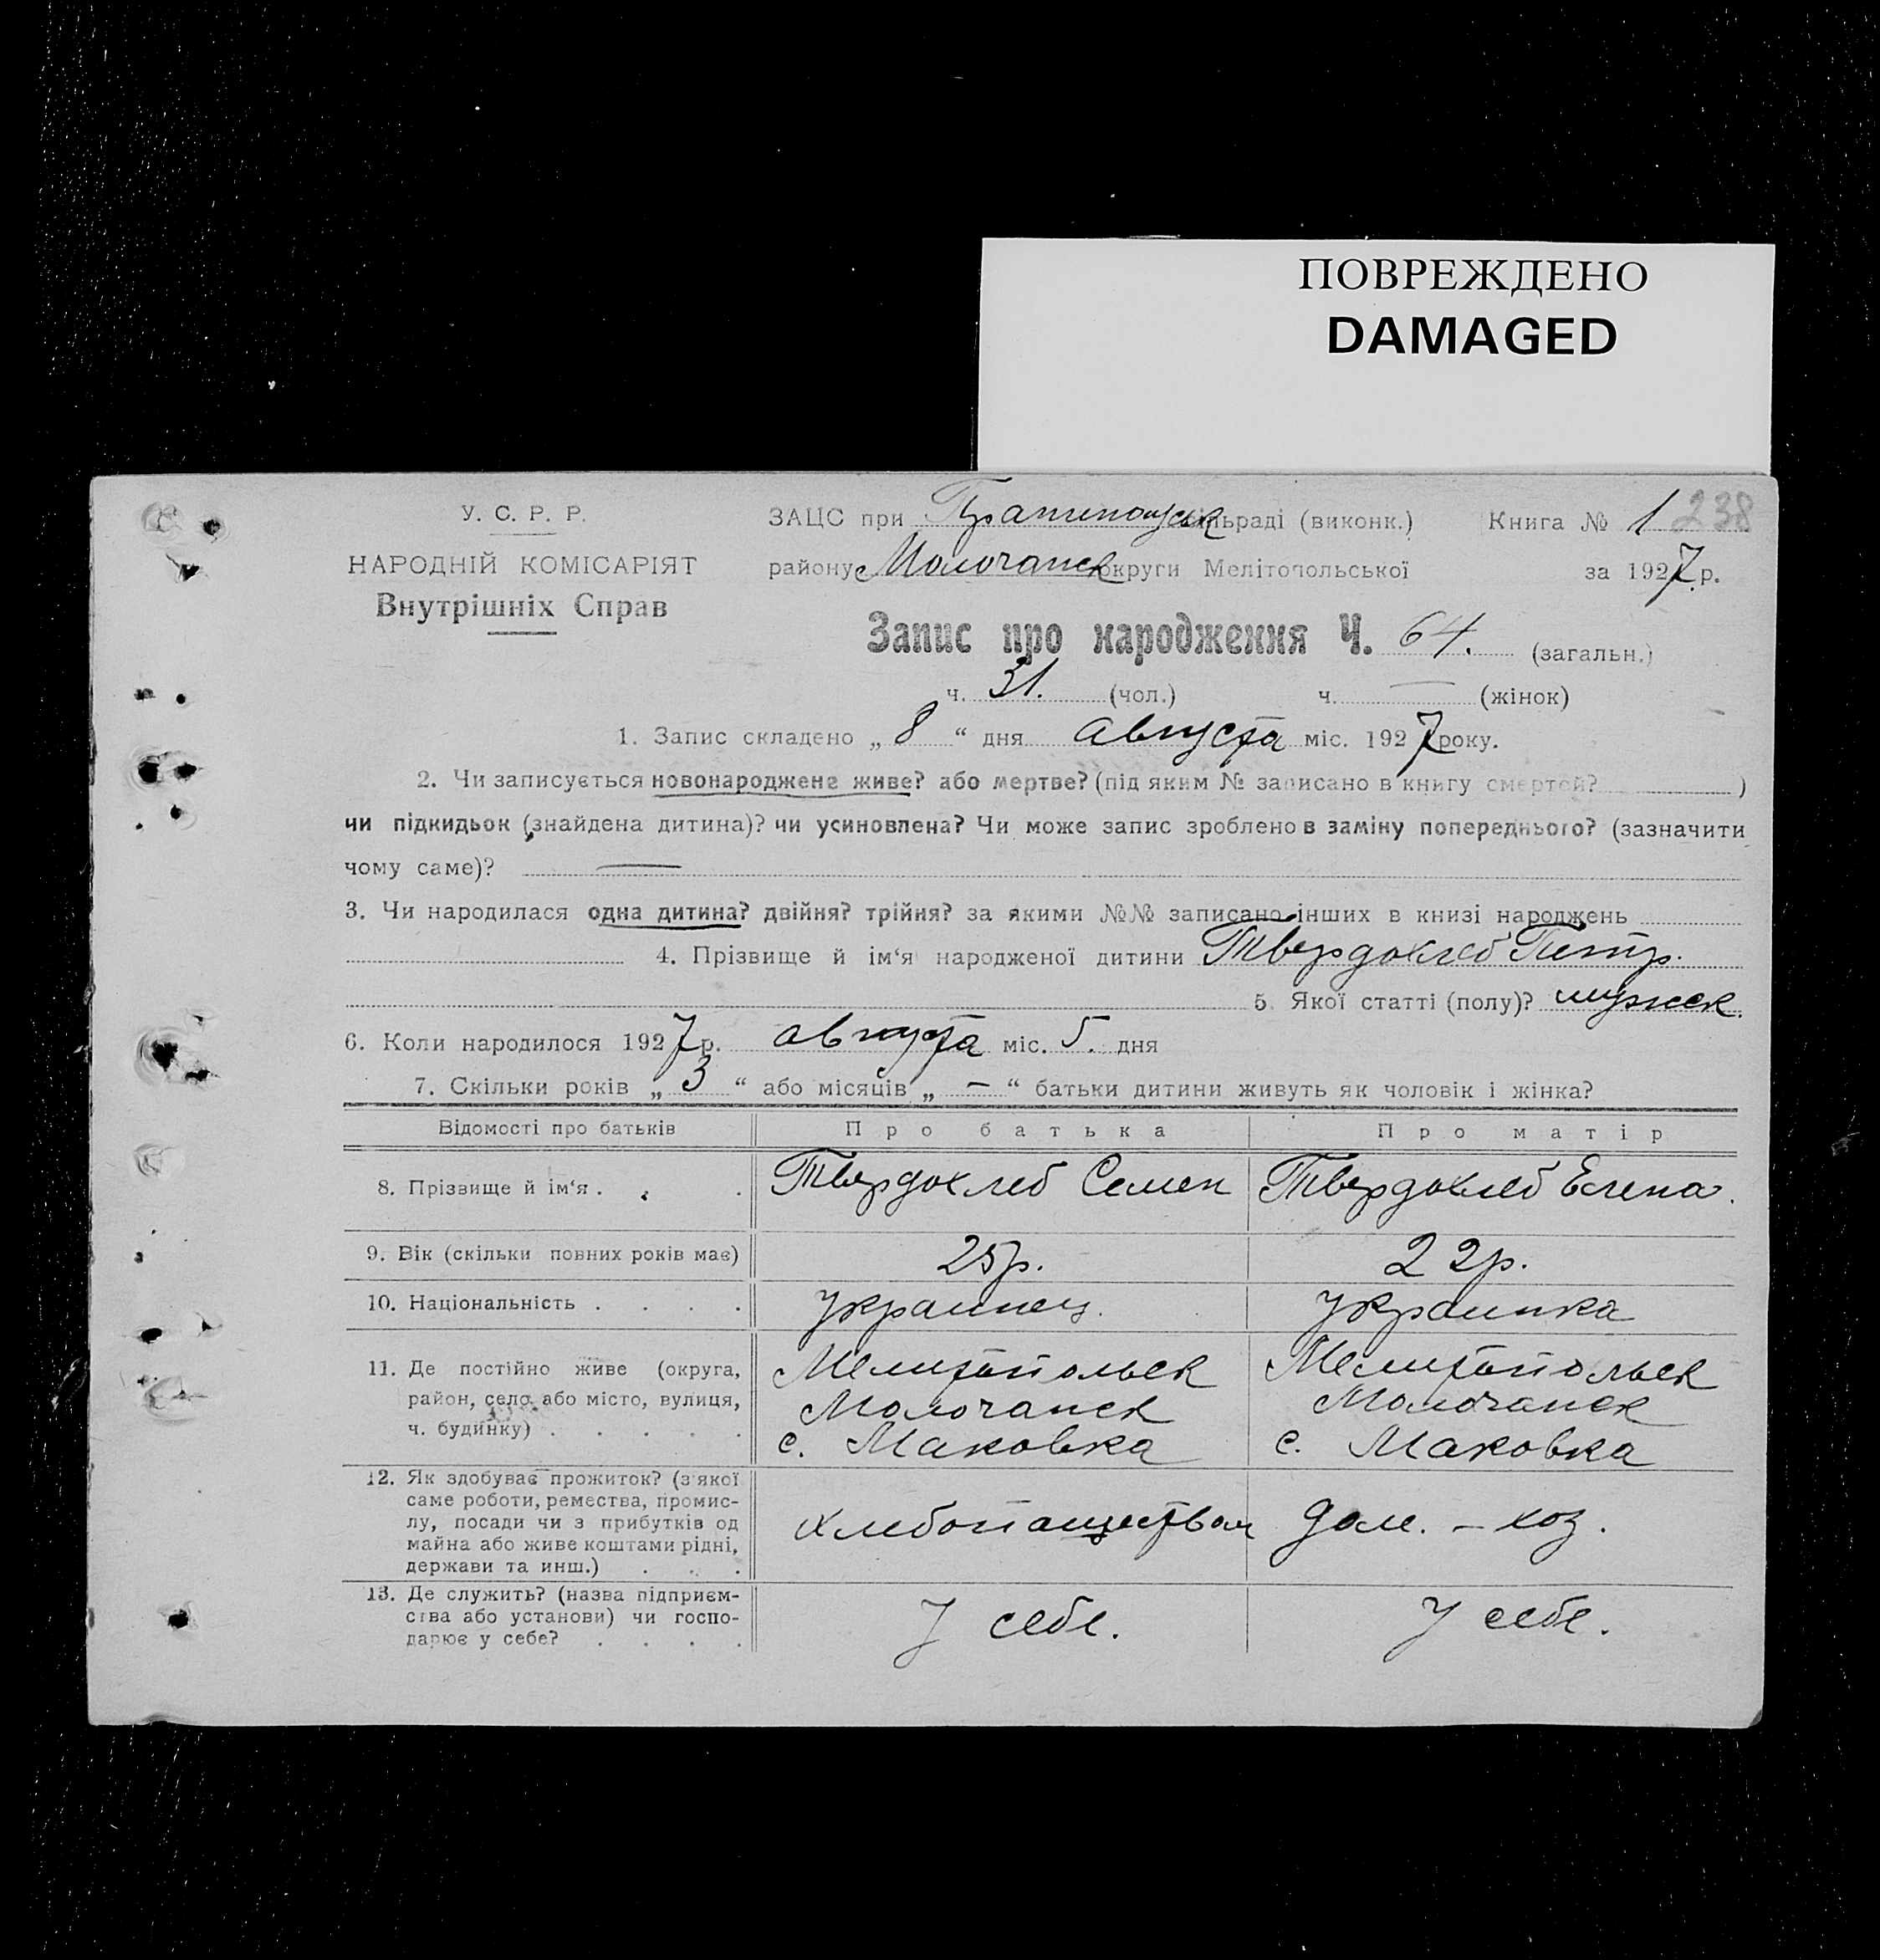 ПОВРЕЖДЕНО
DAMAGED
У. С. Р. Р.
НАРОДНІЙ КОМІСАРІЯТ
Внутрішніх Справ
ЗАЦС при сільраді (виконк.) Книга № 1 238
району Молочанск округи Мелітопольської за 1927 р.
Запис про народження Ч. 64. (загальн.)
ч. 31. (чол.) ч. — (жінок)
1. Запис складено „ 8 “ дня августа міс. 1927 року.
2. Чи записується новонароджене живе? або мертве? (під яким № записано в книгу смертей? )
чи підкидьок (знайдена дитина)? чи усиновлена? Чи може запис зроблено в заміну попереднього? (зазначити
чому саме)? —
3. Чи народилася одна дитина? двійня? трійня? за якими №№ записано інших в книзі народжень
4. Прізвище й ім‘я народженої дитини Твердохлеб Петр.
5. Якої статті (полу)? мужск.
6. Коли народилося 1927 р. августа міс. 5. дня
7. Скільки років „ 3 “ або місяців „ — “ батьки дитини живуть як чоловік і жінка?
Відомості про батьків Про батька Про матір
8. Прізвище й ім‘я . . . Твердохлеб Семен Твердохлеб Елена.
9. Вік (скільки повних років має) 25 р. 22 р.
10. Національність . . . . Украинец. Украинка
11. Де постійно живе (округа, Мелитопольск Мелитопольск
район, село або місто, вулиця, Молочанск Молочанск
ч. будинку) . . . . . с. Маковка с. Маковка
12. Як здобуває прожиток? (з якої
саме роботи, ремества, промис-
лу, посади чи з прибутків од хлебопашеством дом. - хоз.
майна або живе коштами рідні,
держави та инш.) . . .
13. Де служить? (назва підприєм-
ства або установи) чи госпо- У себе. У себе.
дарює у себе? . . . .